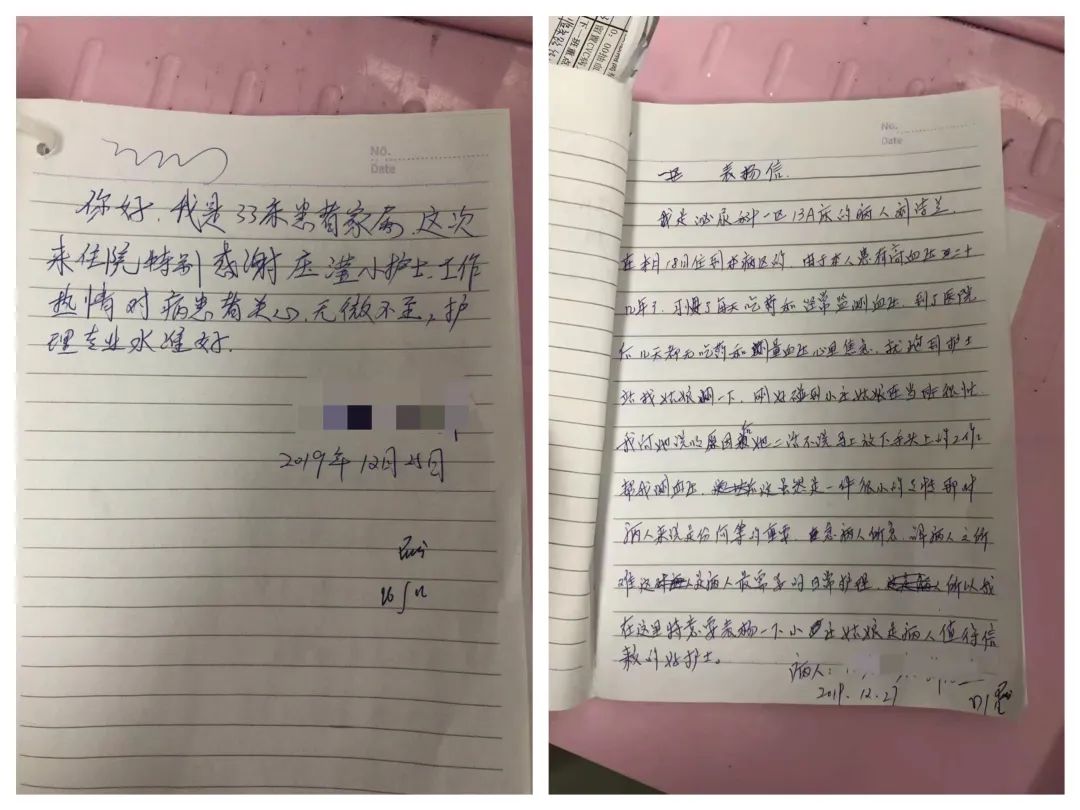 No.
Date
你好.我是33床患者家属.这次
来住院特别感谢庄滢小护士.工作
热情对病患者关心.无微不至,护
理专业水准好.
2019年12月25日
No.
Date
表扬信.
我是泌尿科一区13A床的病人
在本月18日住到本病区的.由于本人患有高血压 二十
几年了.习惯了每天吃药和经常监测血压.到了医院
几天都无吃药和测量血压心里焦急.我跑到护士
站找姑娘测一下.刚好碰到小庄姑娘在当班很忙.
我对她说的原因 给她二话不说马上放下手头上的工作
帮我测血压. 这虽然是一件很小的事情那对
病人来说是份何等的重要. 急病人所急.解病人之所
难这 是病人最需要的日常护理. 所以我
在这里特意要表扬一下小 庄姑娘是病人值得信
赖的好护士。
病人:
2019.12.27